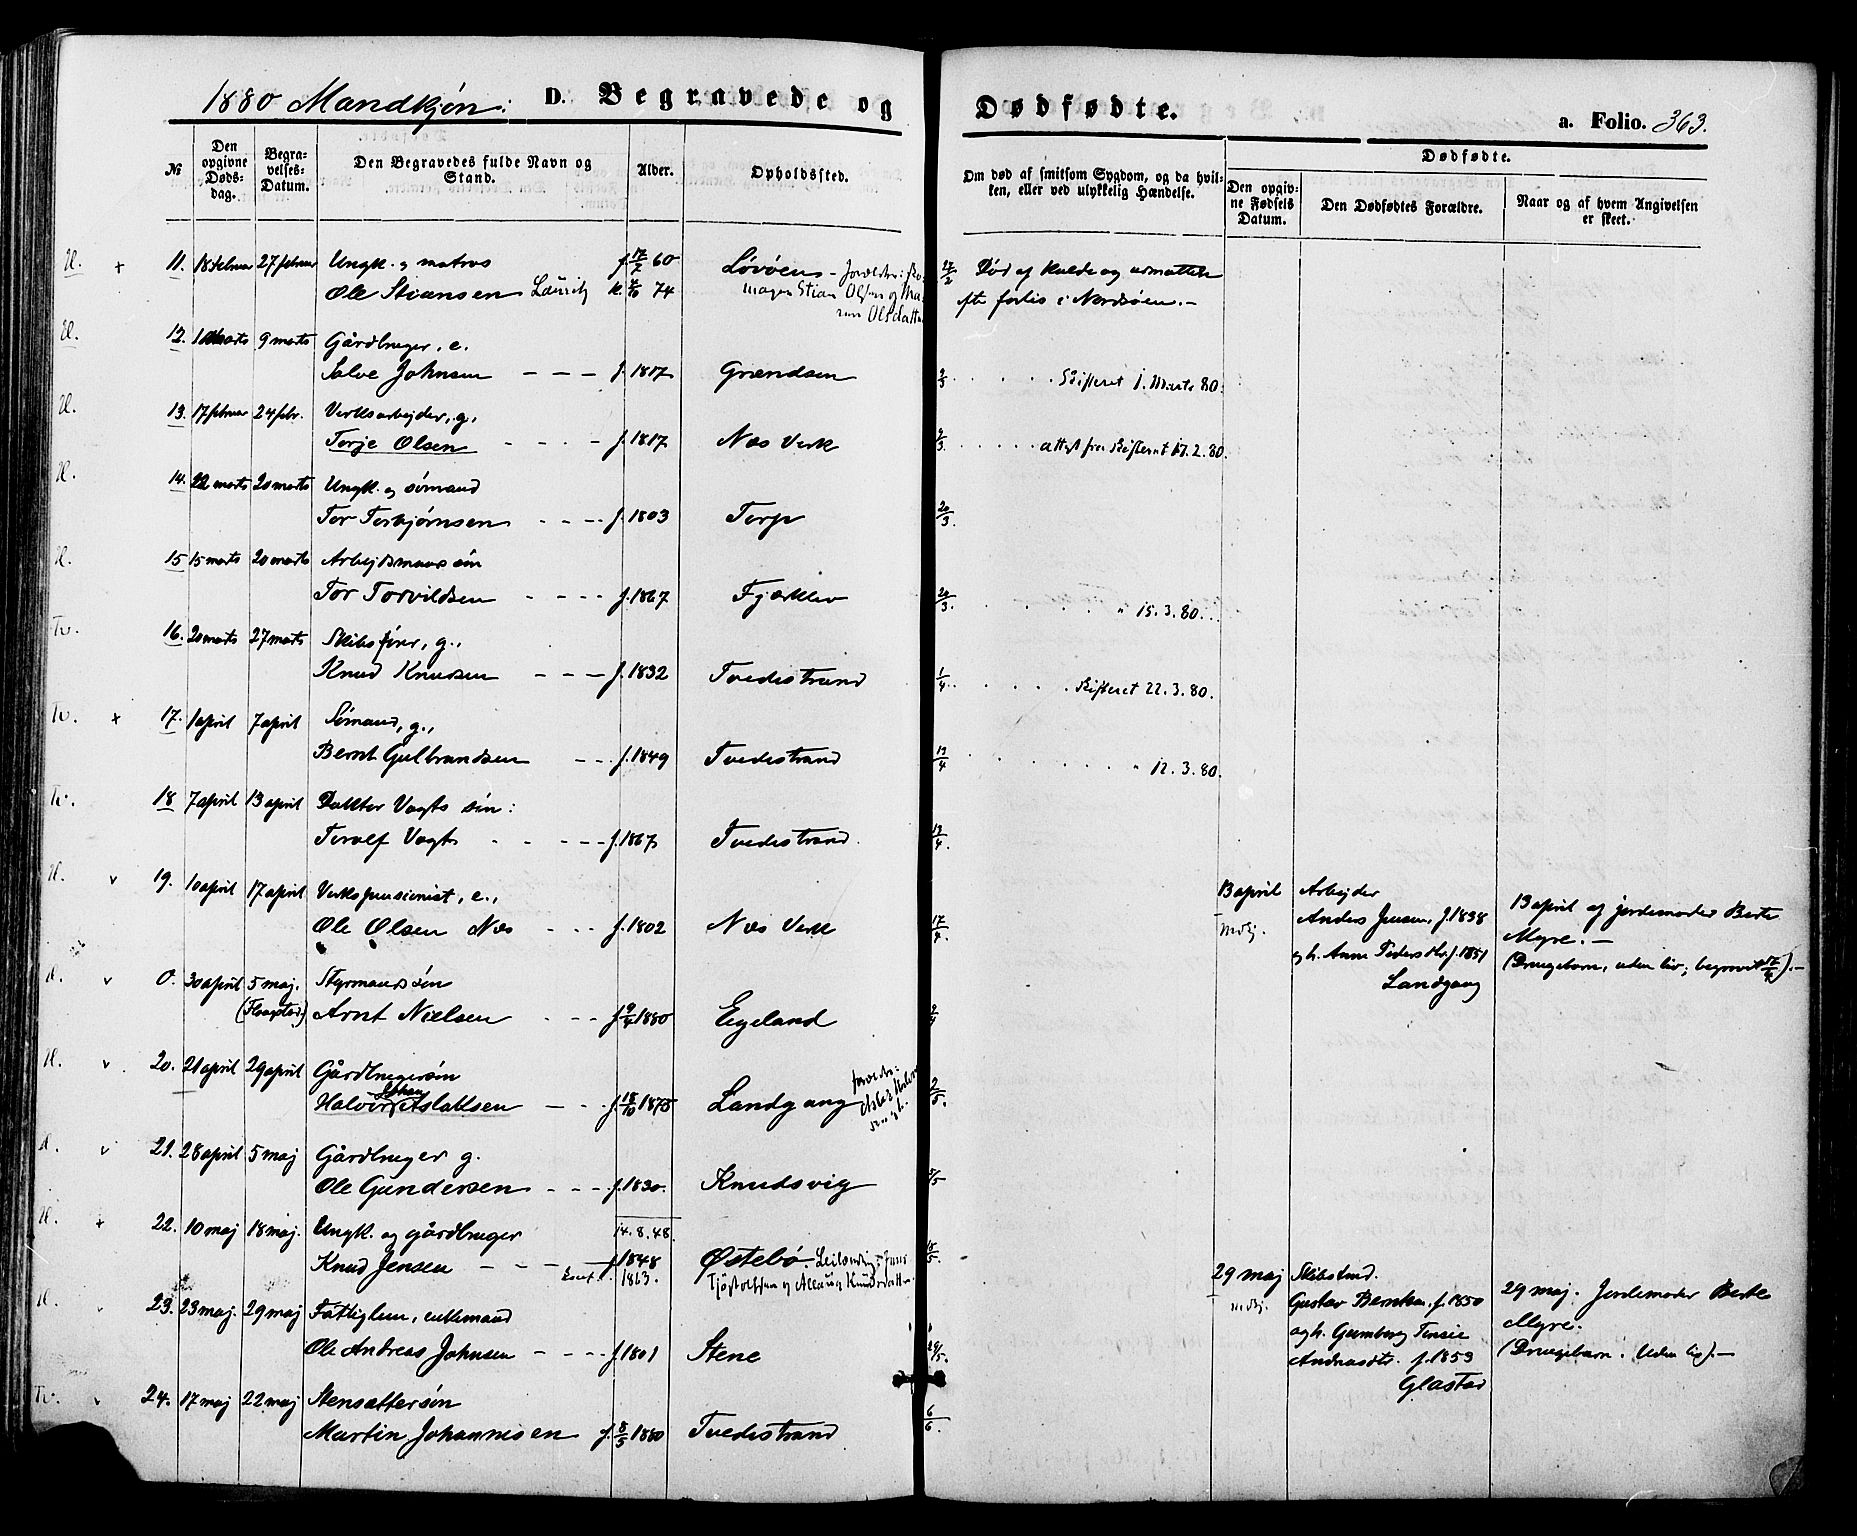 1880 Mandkjøn: D. Begravede og Dødfødte. a. Folio. 363.
№
Den opgivne Døds-dag.
Begra-velses-Datum.
Den Begravedes fulde Navn og Stand.
Alder.
Opholdssted.
Om død af smitsom Sygdom, og da hvil-ken, eller ved ulykkelig Hændelse.
Dødfødte.
Den opgiv-ne Fødsels Datum.
Den Dødfødtes Forældre.
Naar og af hvem Angivelsen er skeet.
H. + 11. 18 februar 27 februar Ungk. og matros f. 17/7 60 Løvøens - forældre:
Ole Stiansen Lauritz k. 74 Stian Olsen og Maren Olsdatter
27/2 Død af kulde og udmattelse
efter forlis i Nordsøen. -
H. 12. marts 9 marts Gårdbruger, e.
Salve Johnsen - - - f. 1817 Grændsen 9/3 Skifteret 1. Marts 80.
H. 13. 17 februar 24 febr. Verksarbejder, g,
Torje Olsen - - - f. 1817 Næs Verk 9/3 attest fra Skifteret 17.2.80.
H. 14. 22 marts 20 marts Ungk. og sømand
Tor Torbjørnsen - - - f. 1803 Torp 20/3.
H. 15 15 marts 20 marts Arbejdsmans søn
Tor Torvildsen - - - f. 1867 Fjærkleiv 20/3. " 15.3.80.
Tv. 16. 20 marts 27 marts Skibsfører, g.,
Knud Knudsen - - - f. 1832 Tvedestrand 1/4. Skifteret 22.3.80.
Tv. + 17. 1 april 7 april Sømand, g.,
Bernt Gulbrandsen - - f. 1849 Tvedestrand 13/4 " 12.3.80.
Tv. 18 7 april 13 april Doktor Vogts søn:
Torolf Vogt - - - f. 1867 Tvedestrand. 13/4.
H. v 19. 10 april 17 april Verkspensionist, e.,
Ole Olsen Næs - - - f. 1802 Næs Verk 17/4.
13 april Arbejder
mdkj. Anders Jensen, f. 1838
og h. Anne Pedersdtr. f. 1851
Landgang
13 april af jordemoder Berte
Myre. -
(Drengebarn, uden liv; begravet 17/4). -
H. v 0. 30 april 5 maj. Styrmanssøn
(Flosta) Arnt Nielsen - - - f. 9/4 1880 Eegeland
H. v 20. 21 april 29 april Gårdbrugersøn
Halvor Johan Aslaksen - - f. 18/10 1875 Landgang forældre:
H. v 21. 28 april 5 maj Gårdbruger g.
Ole Gundersen - - - f. 1830. Knudsvig 5/5
H. + 22. 10 maj 18 maj. Ungk. og gårdbruger 14.8.48.
Knud Jensen - - - f. 1848 Østebø. Leilending Jens
1863. Tjøstolfsen og Knudsdatter
H. v 23. 23 maj. 29 maj Fattiglem, enkemand
Ole Andreas Johnsen - - - f. 1801 Stene 29/5.
29 maj Skibstmd.
mdkj. Gustav Berntsen, f. 1850
og h. Gumborg Tensie
Andreasdtr. f. 1853
Glastad
29 maj. Jordemoder Berte
Myre.
(Drengebarn. Uden liv). -
Tv. v 24. 17 maj 22 maj Stensættersøn
Martin Johannesen f. 8/5 1880 Tvedestrand 6/6